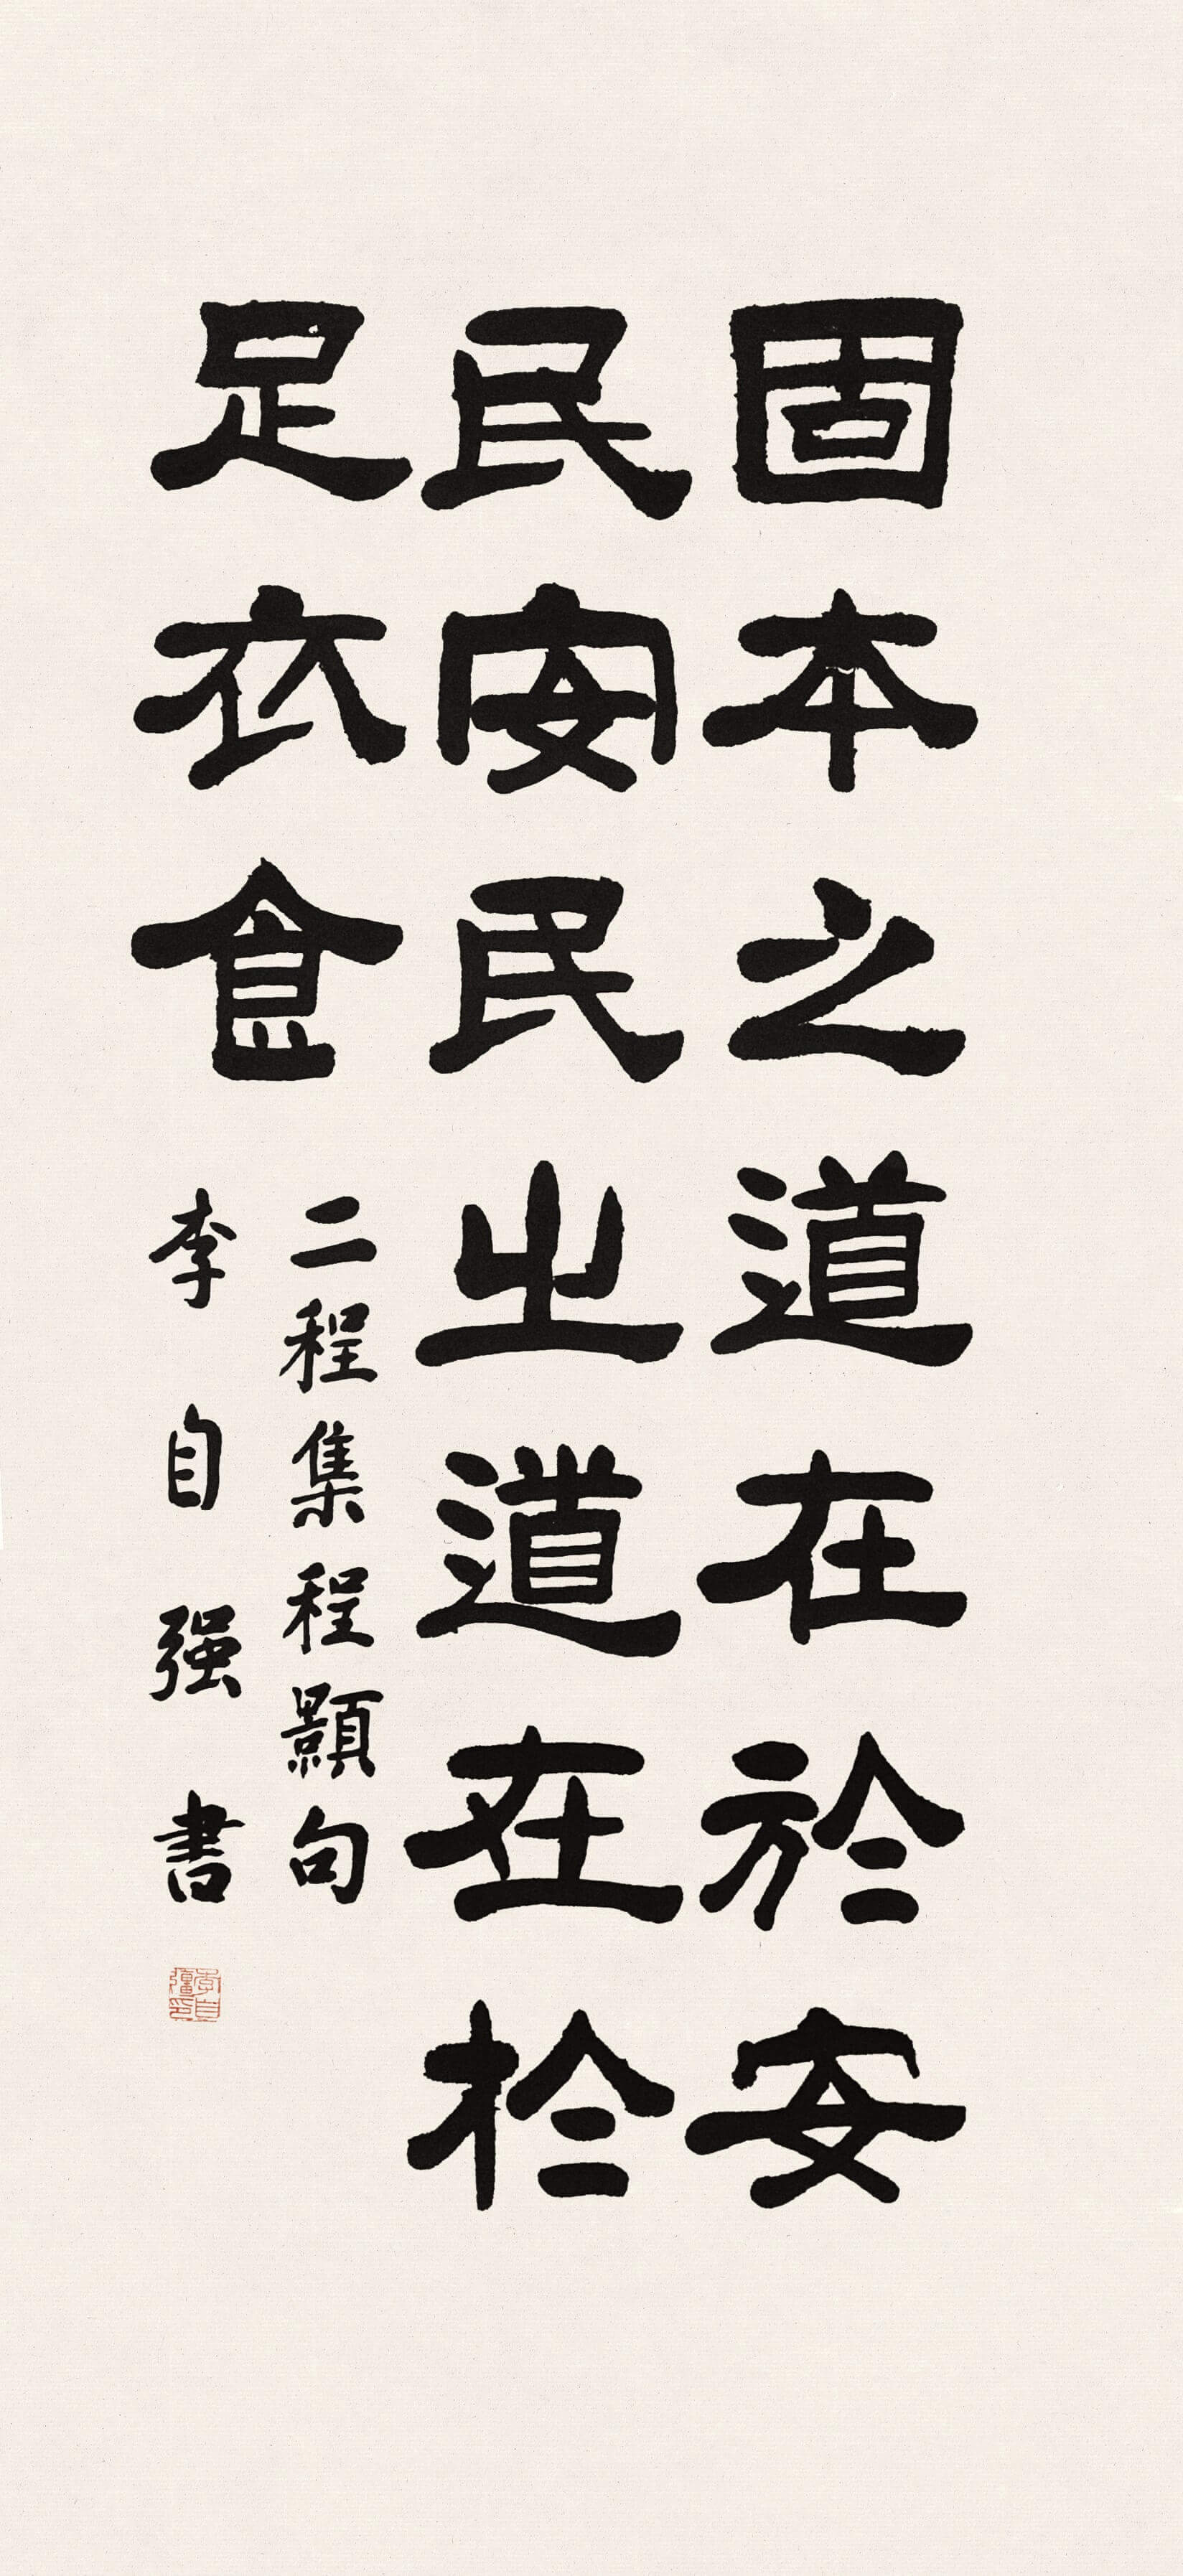 固本之道在於安
民安民之道在於
足衣食
二程集程顥句
李自强書
李自彊印